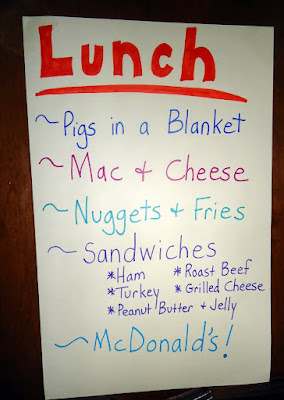 Lunch
~Pigs in a Blanket
~Mac & Cheese
~Nuggets & Fries
~Sandwiches
*Ham *Roast Beef
*Turkey *Grilled Cheese
*Peanut Butter & Jelly
~McDonald's!